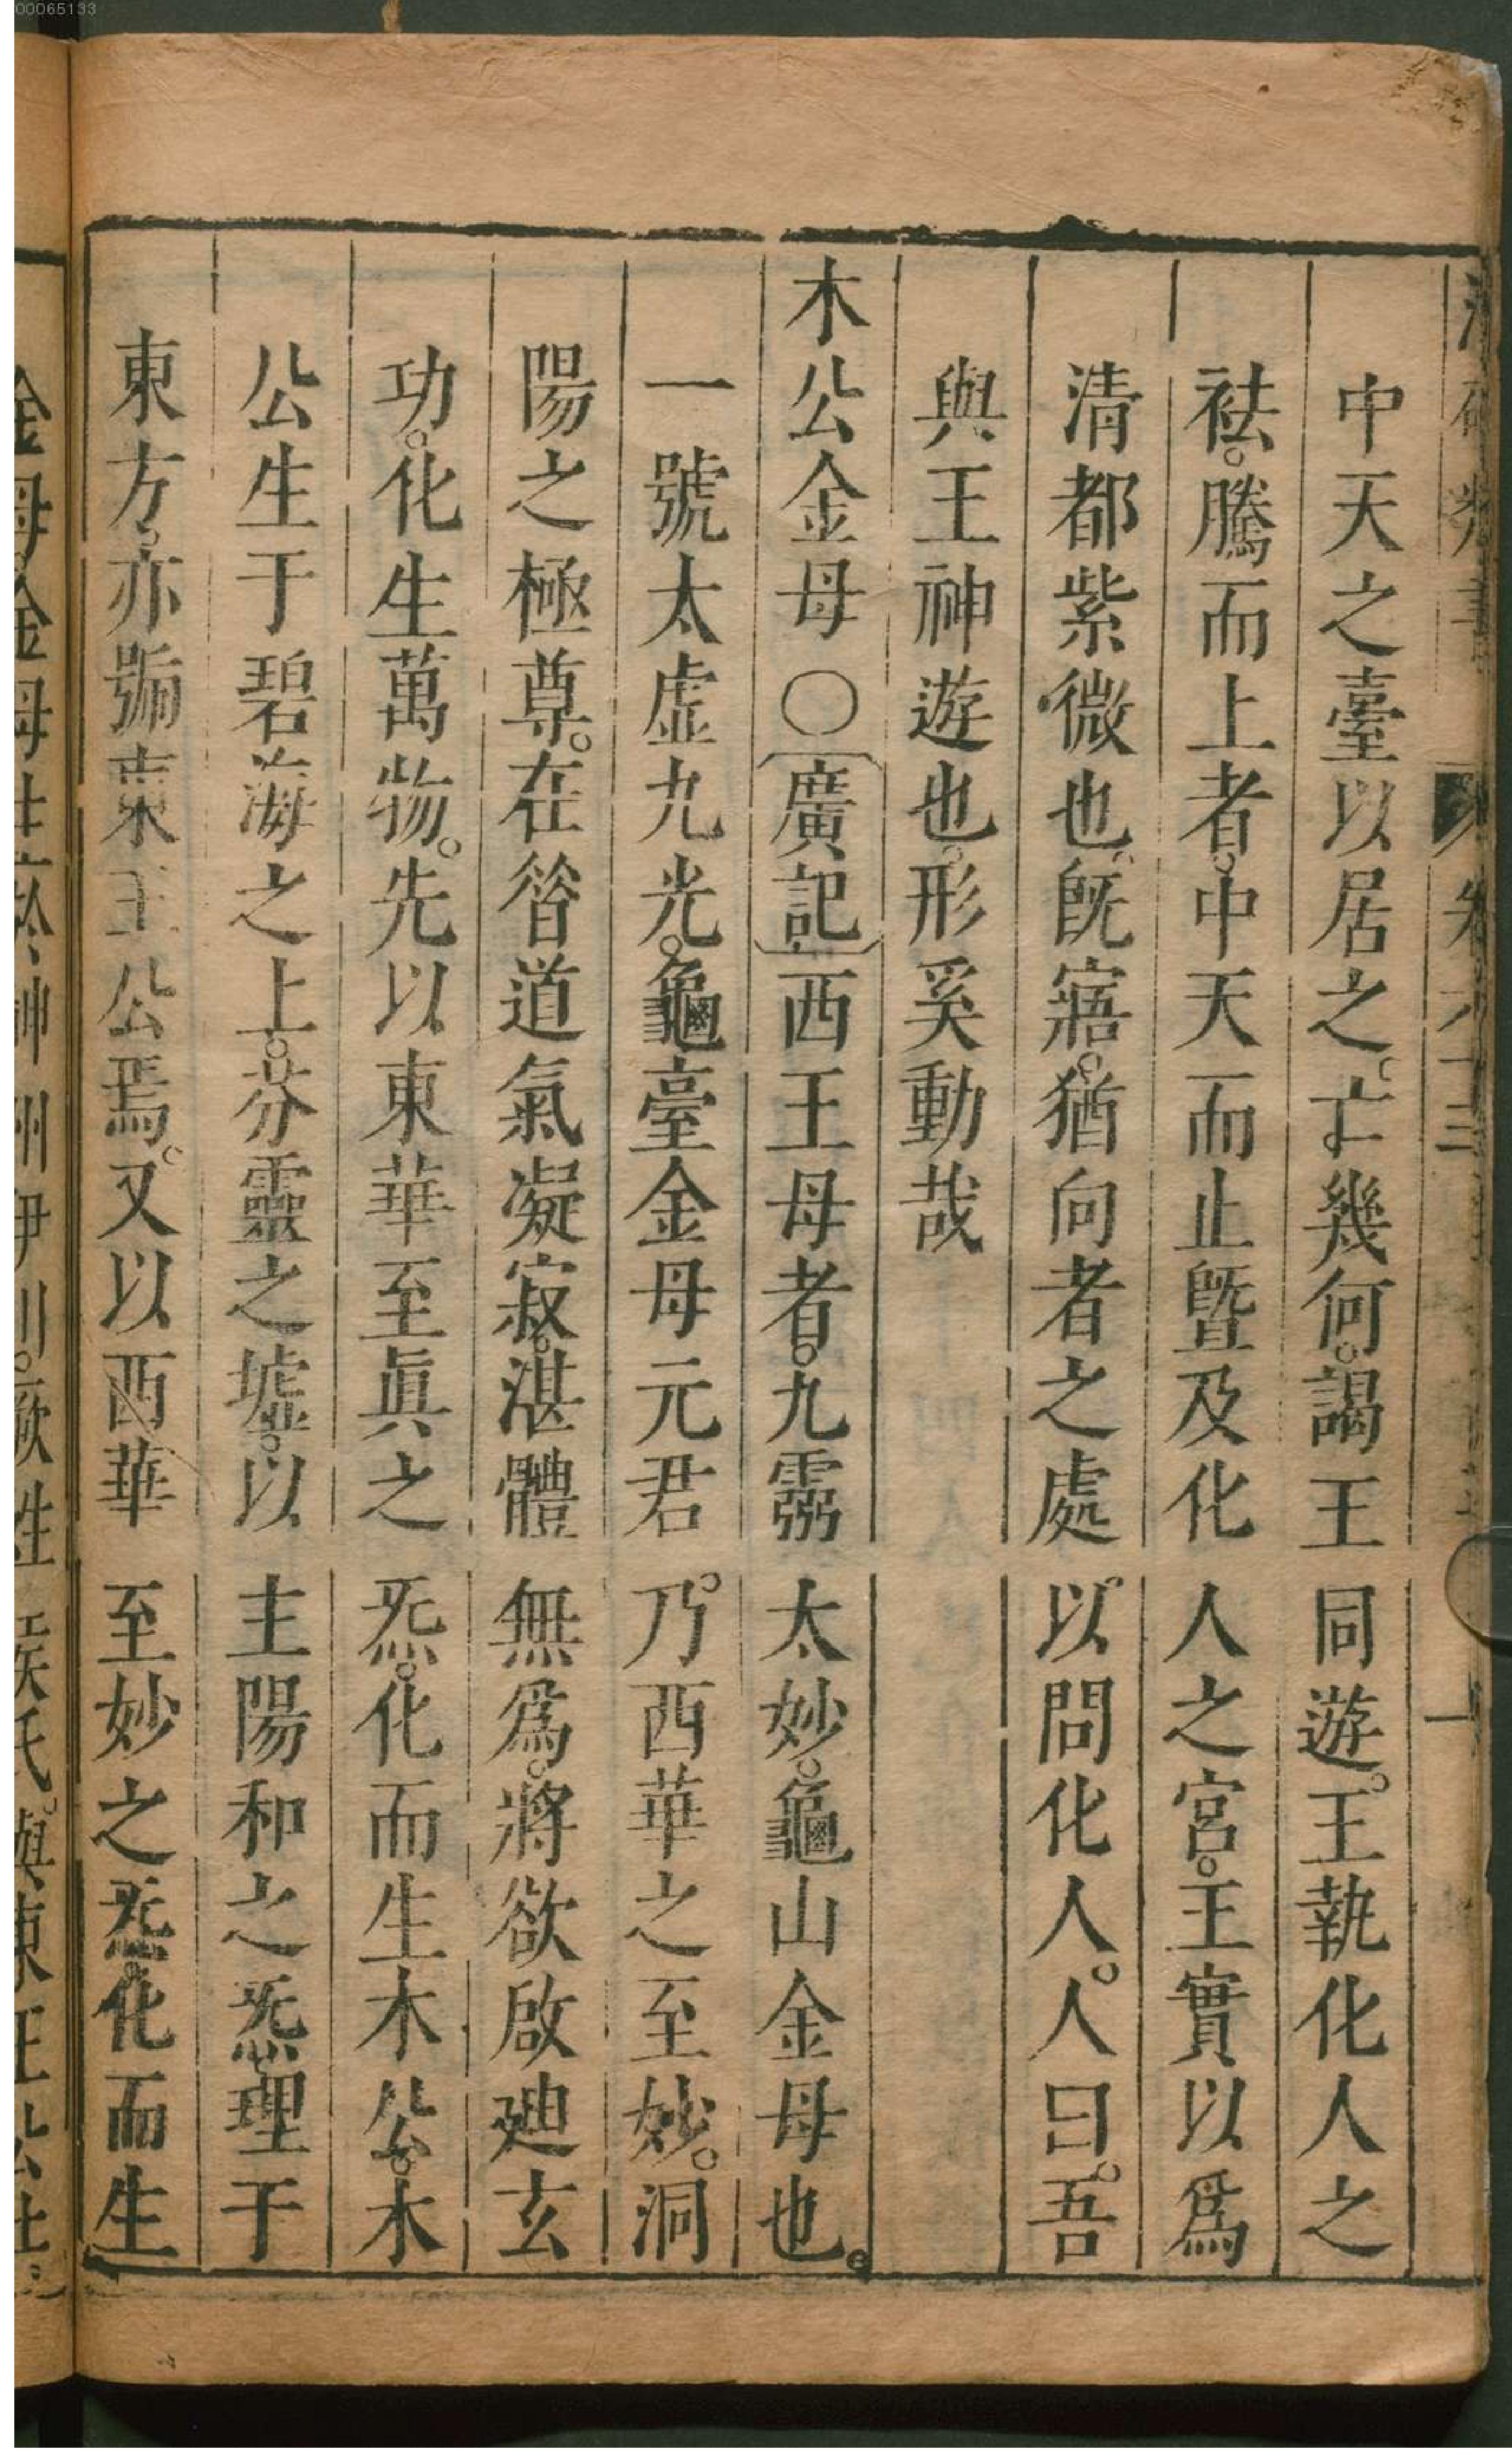 中天之臺以居之。亡幾何。謁王同遊。王執化人之
袪。騰而上者。中天而止暨及化人之宮。王實以爲
清都紫微也。旣寤。猶向者之處。以問化人。人曰。吾
與王神遊也。形奚動哉
木公金母○〔廣記〕西王母者。九靈太妙。龜山金母也。
一號太虛九光。龜臺金母元君。乃西華之至妙。洞
陽之極尊。在昝道氣凝寂。湛體無爲。將欲啟廸玄
功。化生萬物。先以東華至眞之炁。化而生木公。木
公生于碧海之上。芬靈之墟。以主陽和之炁。理于
東方。亦號東王公焉。又以西華至妙之炁。化而生
00065133